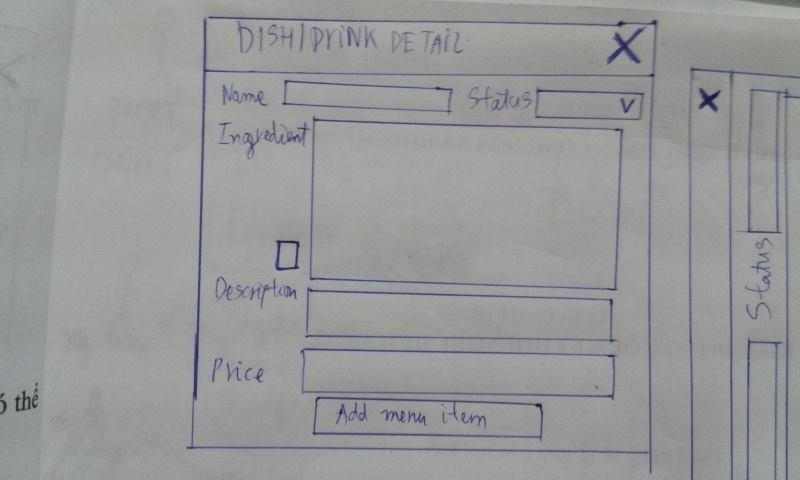 DISH/DRINK DETAIL X
Name Status V
Ingredient
Description
Price
Add menu item
X
Status
thể